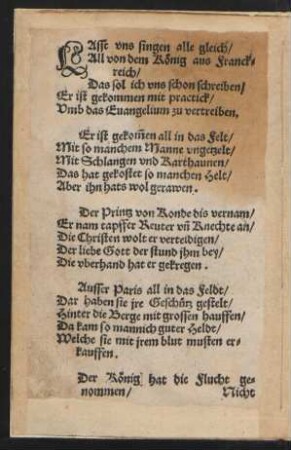 LAsst vns singen alle gleich/
All von dem König aus Franck-
reich/
Das sol ich vns schon schreiben/
Er ist gekommen mit practick/
Vmb das Euangelium zu vertreiben.
Er ist gekom̄en all in das Felt/
Mit so manchem Manne vngetzelt/
Mit Schlangen vnd Karthaunen/
Das hat gekostet so manchen Helt/
Aber ihn hats wol gerawen.
Der Printz von Konde dis vernam/
Er nam tapffer Reuter vn̄ Knechte an/
Die Christen wolt er verteidigen/
Der liebe Gott der stund jhm bey/
Die vberhand hat er gekregen.
Ausser Paris all in das Feldt/
Dar haben sie jre Geschütz gestelt/
Hinter die Berge mit grossen hauffen/
Da kam so mannich guter Heldt/
Welche sie mit jrem blut musten er-
kauffen.
Der König hat die Flucht ge-
nommen/ Nicht